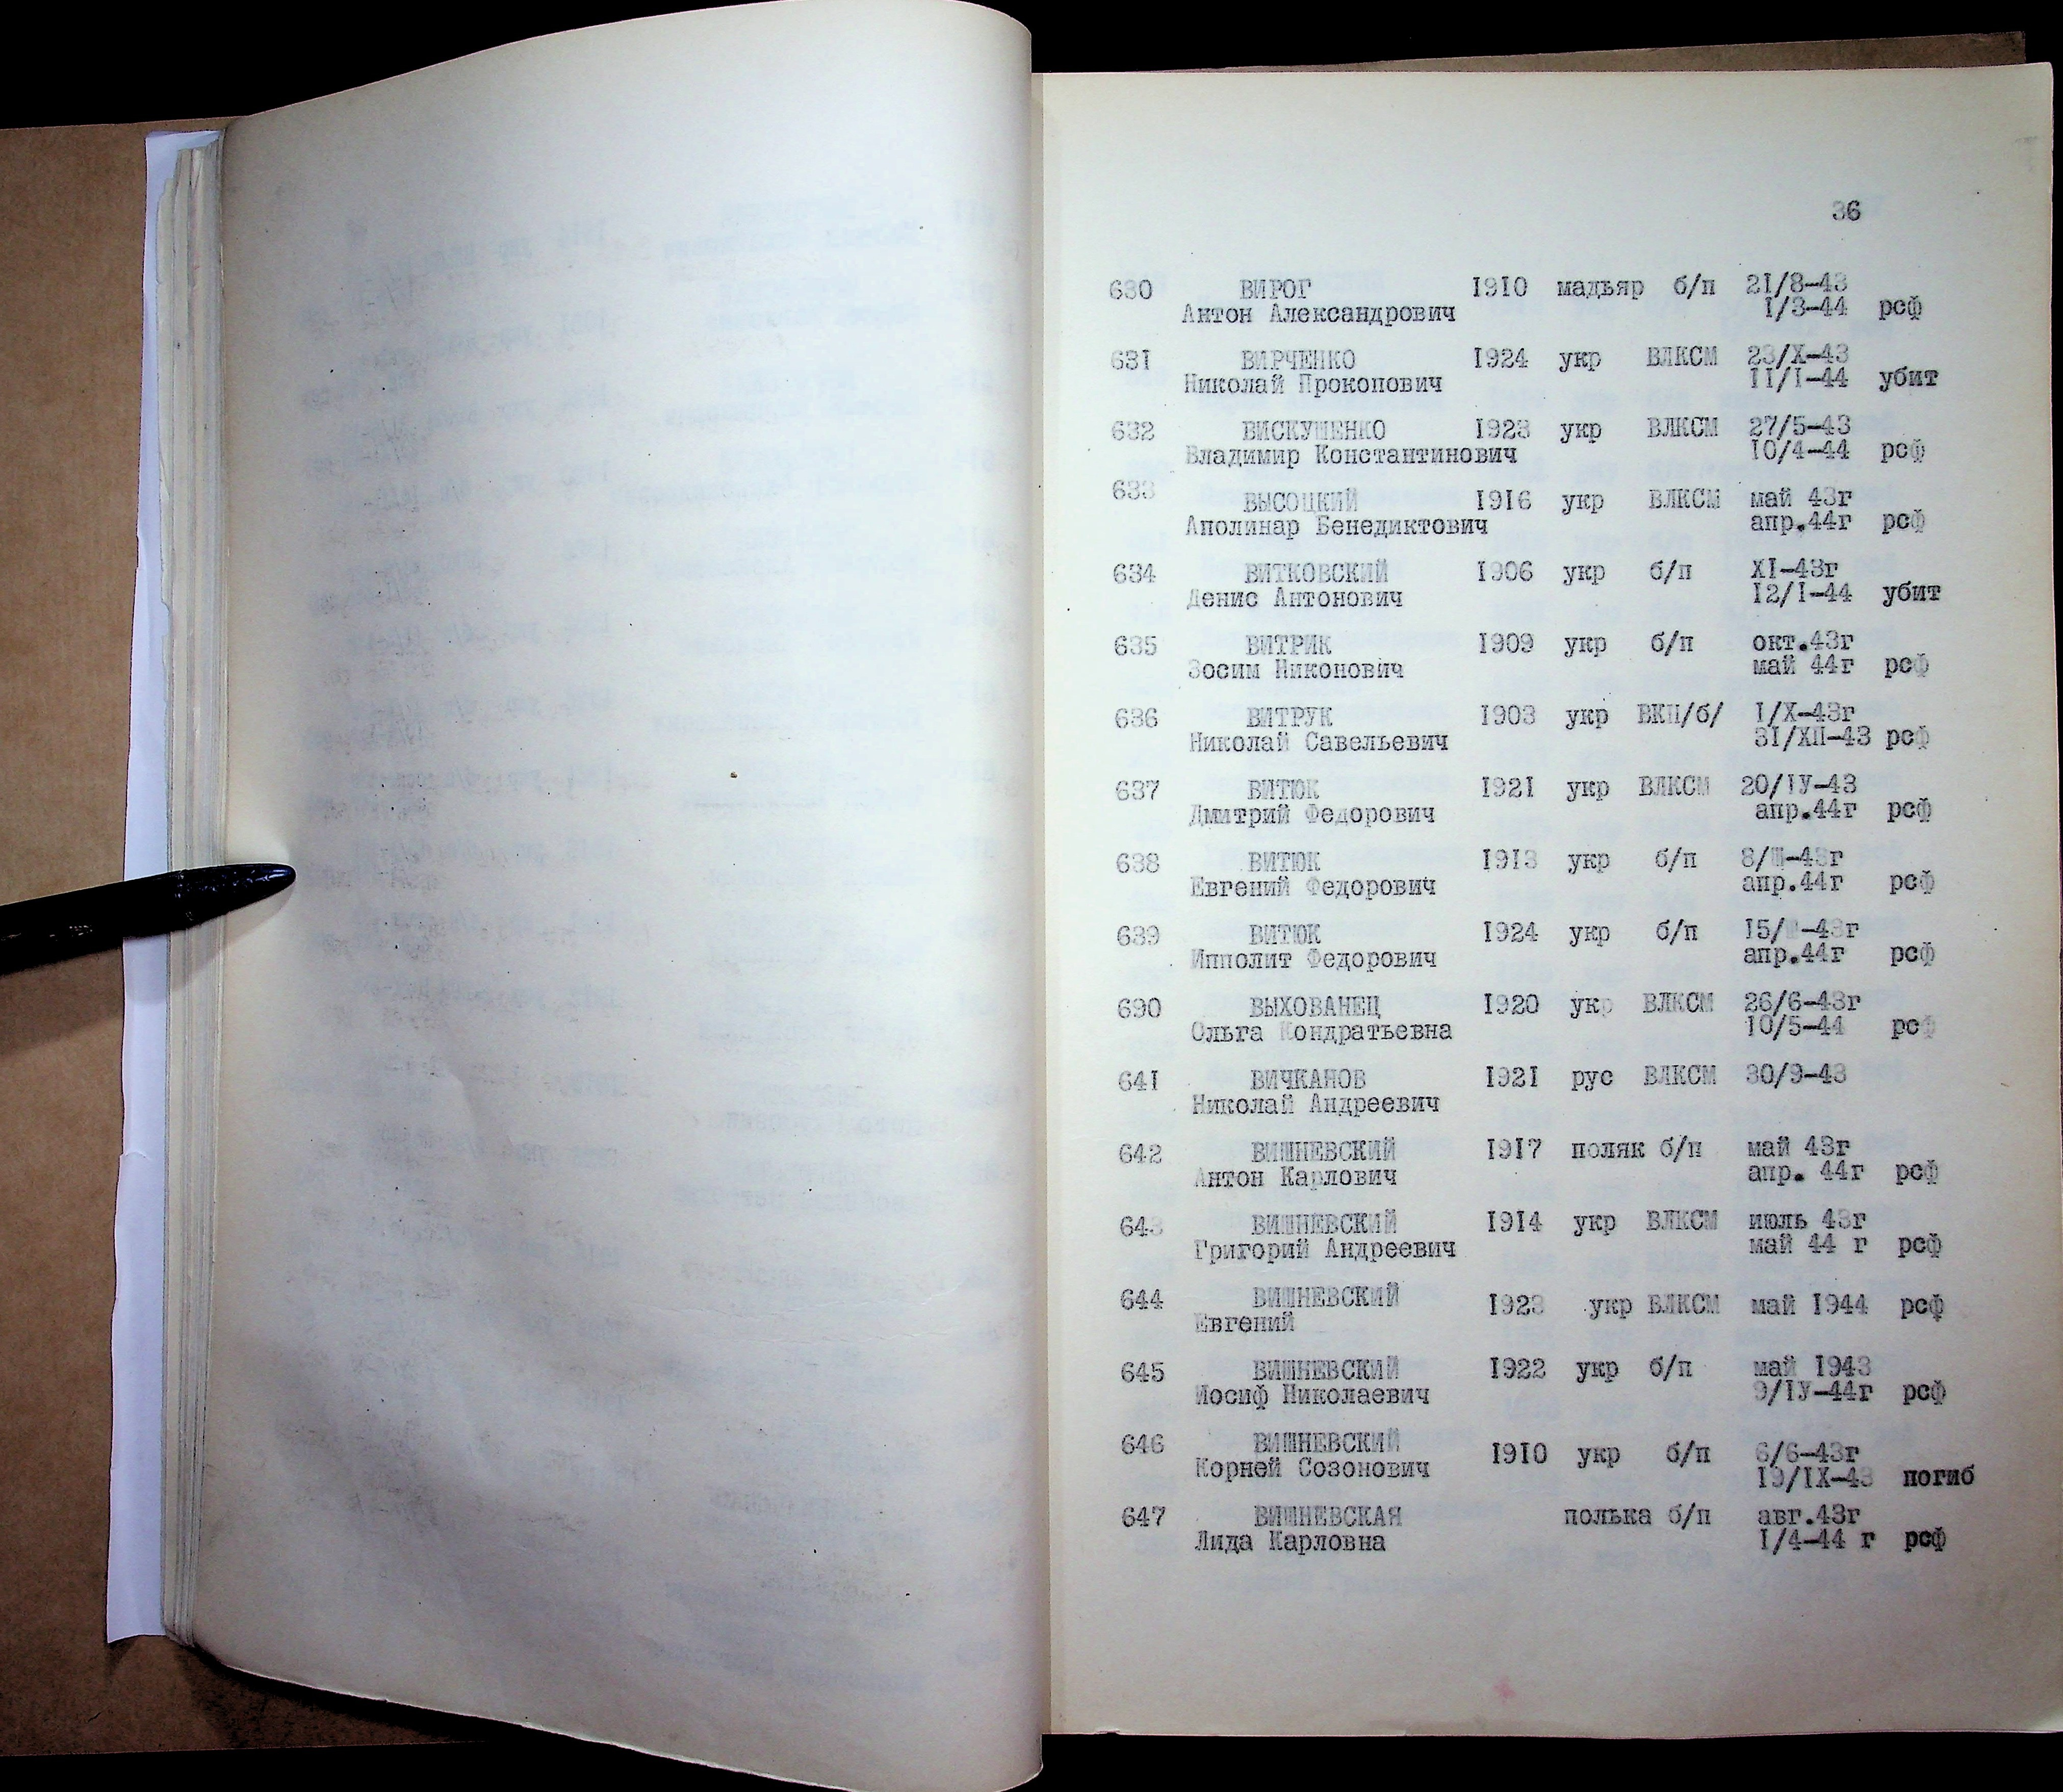 36
630 ВИРОГ 1910 мадьяр б/п 21/8-43
Антон Александрович 1/3-44 рсф
631 ВИРЧЕНКО 1924 укр ВЛКСМ 23/X-43
Николай Прокопович 11/1-44 убит
632 ВИСКУШЕНКО 1923 укр ВЛКСМ 27/5-43
Владимир Константинович 10/4-44 рсф
633 ВЫСОЦКИЙ 1916 укр ВЛКСМ май 43г
Аполинар Бенедиктович апр.44г рсф
634 ВИТКОВСКИЙ 1906 укр б/п XI-43г
Денис Антонович 12/1-44 убит
635 ВИТРИК 1909 укр б/п окт.43г
Зосим Никонович май 44г рсф
636 ВИТРУК 1903 укр ВКП/б/ 1/X-43г
Николай Савельевич 31/XII-43 рсф
637 ВИТЮК 1921 укр ВЛКСМ 20/IУ-43
Дмитрий Федорович апр.44г рсф
638 ВИТЮК 1913 укр б/п 8/Ш-43г
Евгений Федорович апр.44г рсф
639 ВИТЮК 1924 укр б/п
Ипполит Федорович апр.44г рсф
690 ВЫХОВАНЕЦ 1920 укр ВЛКСМ 26/6-43г
Ольга Кондратьевна 10/5-44 рсф
641 ВИЧКАНОВ 1921 рус ВЛКСМ 30/9-43
Николай Андреевич
642 ВИШНЕВСКИЙ 1917 поляк б/п май 43г
Антон Карлович апр. 44г рсф
643 ВИШНЕВСКИЙ 1914 укр ВЛКСМ июль 43г
Григорий Андреевич май 44 г рсф
644 ВИШНЕВСКИЙ 1923 укр ВЛКСМ май 1944 рсф
Евгений
645 ВИШНЕВСКИЙ 1922 укр б/п май 1943
Иосиф Николаевич 9/IУ-44г рсф
646 ВИШНЕВСКИЙ 1910 укр б/п 6/6-43г
Корней Созонович 19/IX-43 погиб
647 ВИШНЕВСКАЯ полька б/п авг.43г
Лида Карловна 1/4-44 г рсф